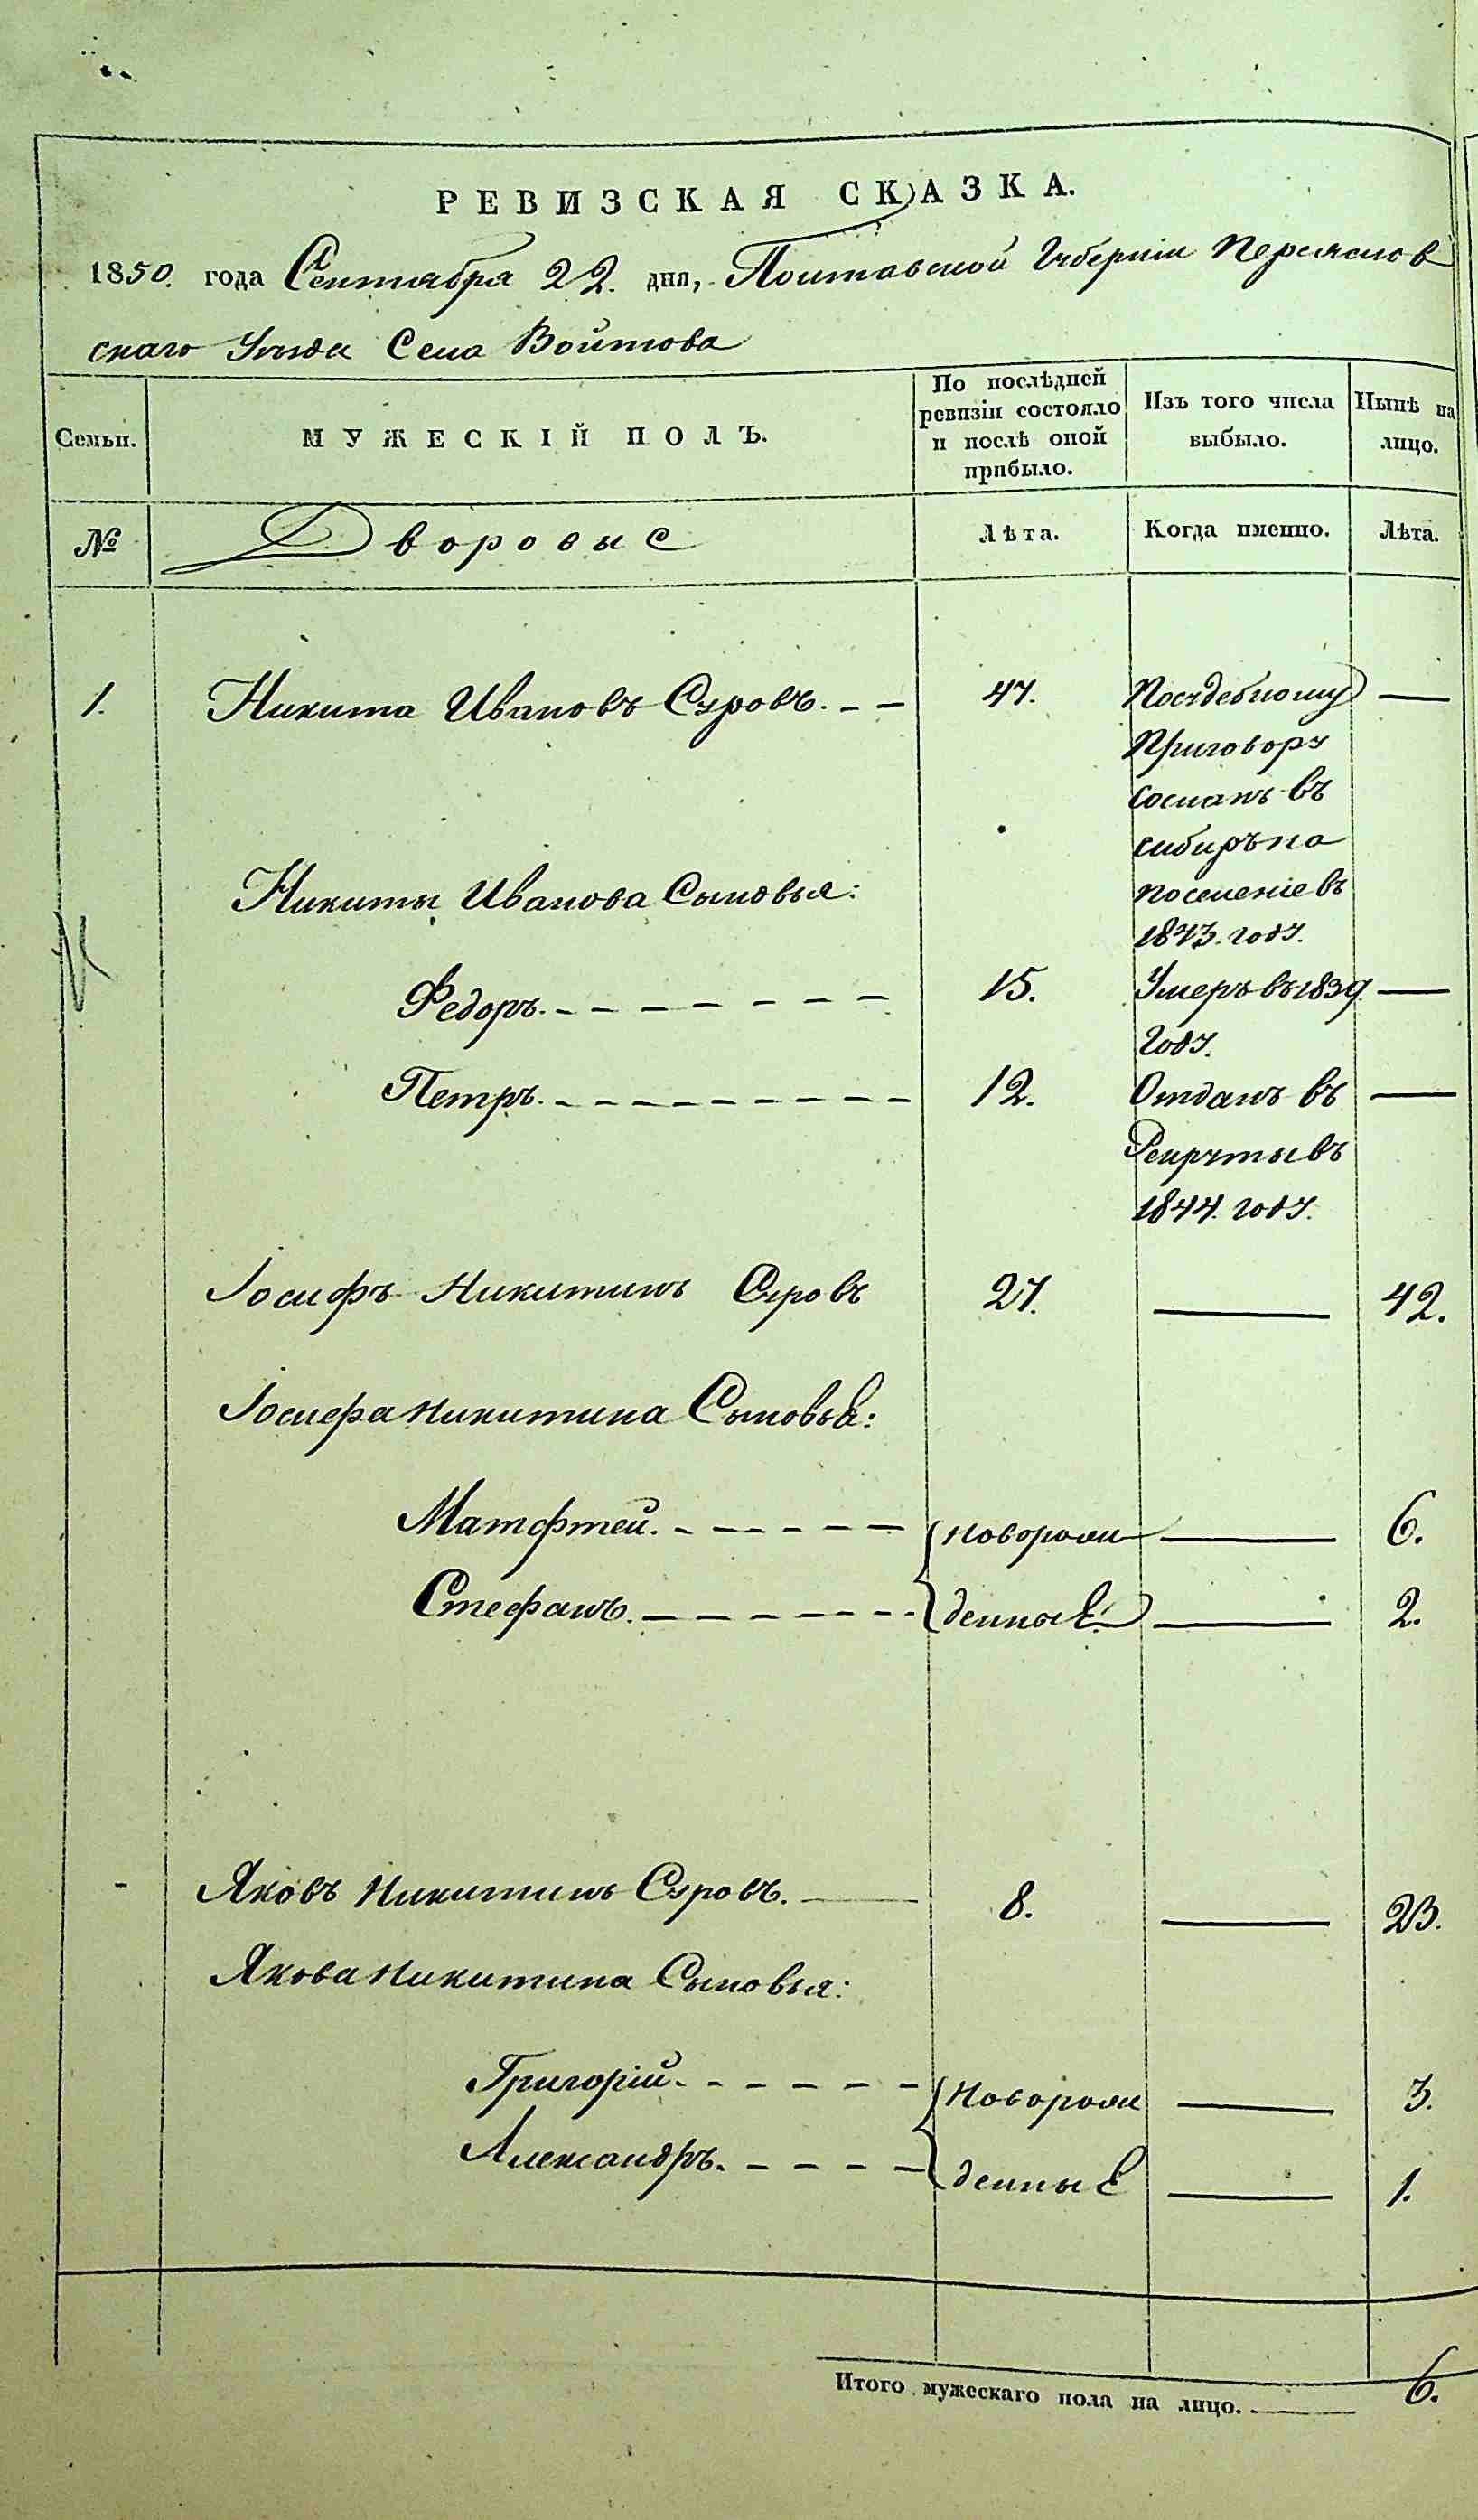 РЕВИЗСКАЯ СКАЗКА.
1850. года Сентября 22. дня, Полтавской Губерніи Переяслов
скаго Уѣзда Села Войтова
Семьи.
МУЖЕСКІЙ ПОЛЪ.
По послѣдней ревизіи состояло и послѣ оной прибыло.
Изъ того числа выбыло.
Нынѣ на лицо.
№
Дворовые
Лѣта.
Когда именно.
Лѣта.
1. Никита Ивановъ Суровъ. 47. Посудебному
Приговору
Сосланъ въ
сибирь на
поселеніе въ
1843. году.
Никиты Иванова Сыновья:
Федоръ. 15. Умеръ въ 1839
году.
Петръ. 12. Отданъ въ
Рекруты въ
1844. году.
Іосифъ Никитинъ Суровъ 27. 42.
Іосифа Никитина Сыновья:
Матфтей. Новорож 6.
Стефанъ. денные 2.
Яковъ Никитинъ Суровъ. 8. 23.
Якова Никитина Сыновья:
Григорій. Новорож 3.
Александръ. денные 1.
Итого мужескаго пола на лицо. 6.